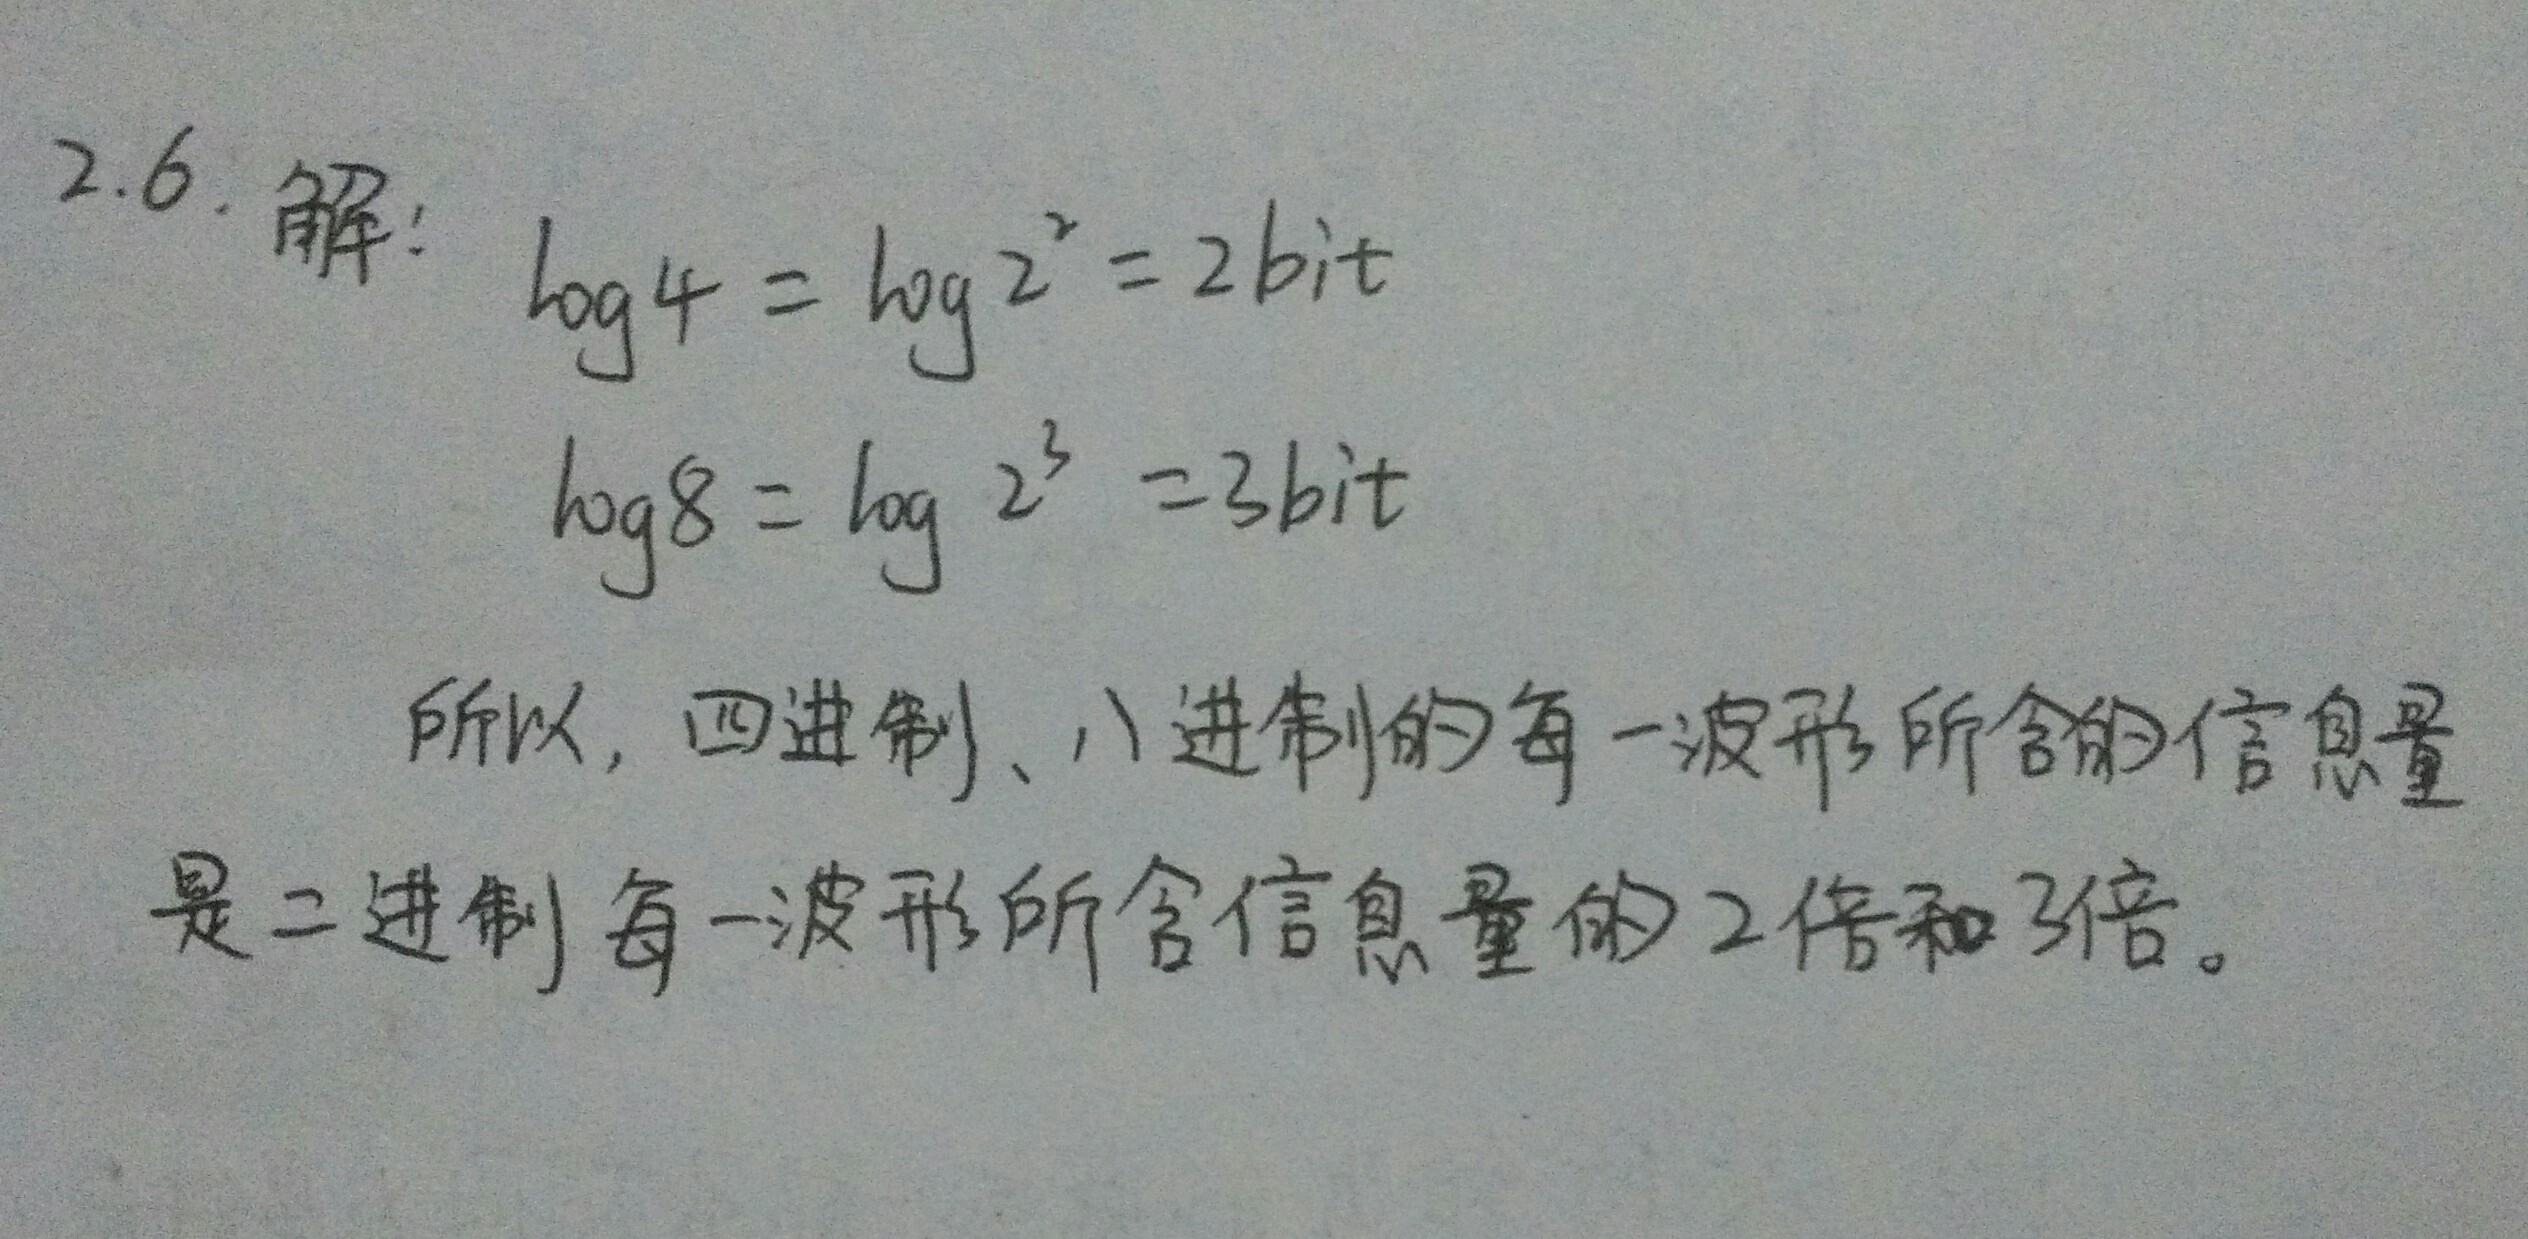 2.6. 解: log4 = log2² = 2bit
log8 = log 2³ = 3bit
所以, 四进制、八进制的每一波形所含的信息量
是二进制每一波形所含信息量的2倍和3倍。